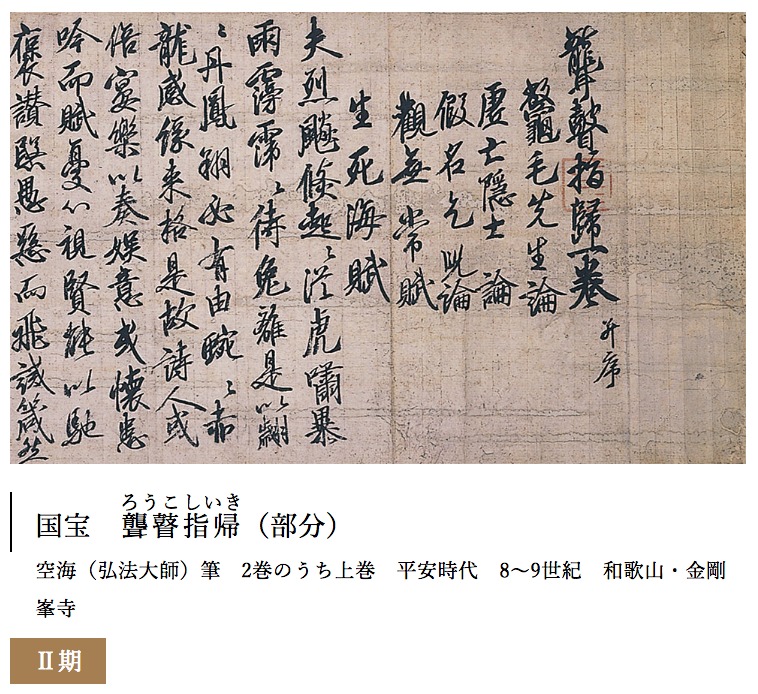 聾瞽指歸一卷 并序
鼈毛先生論
虛亡隱士論
假名乞兒論
觀無常賦
生死海賦
夫烈飈倏起々從虎嘯暴
雨霶霈々待兔離是以翩
々丹鳳翔必有由蜿々赤
龍感緣来格是故詩人或
宴樂以奏娛意或懷患
吟而賦憂心視賢能以馳
褒讚愚惡而飛誡箴然
ろうこしいき
国宝 聾瞽指帰（部分）
空海（弘法大師）筆 2巻のうち上巻 平安時代 8〜9世紀 和歌山・金剛
峯寺
Ⅱ期